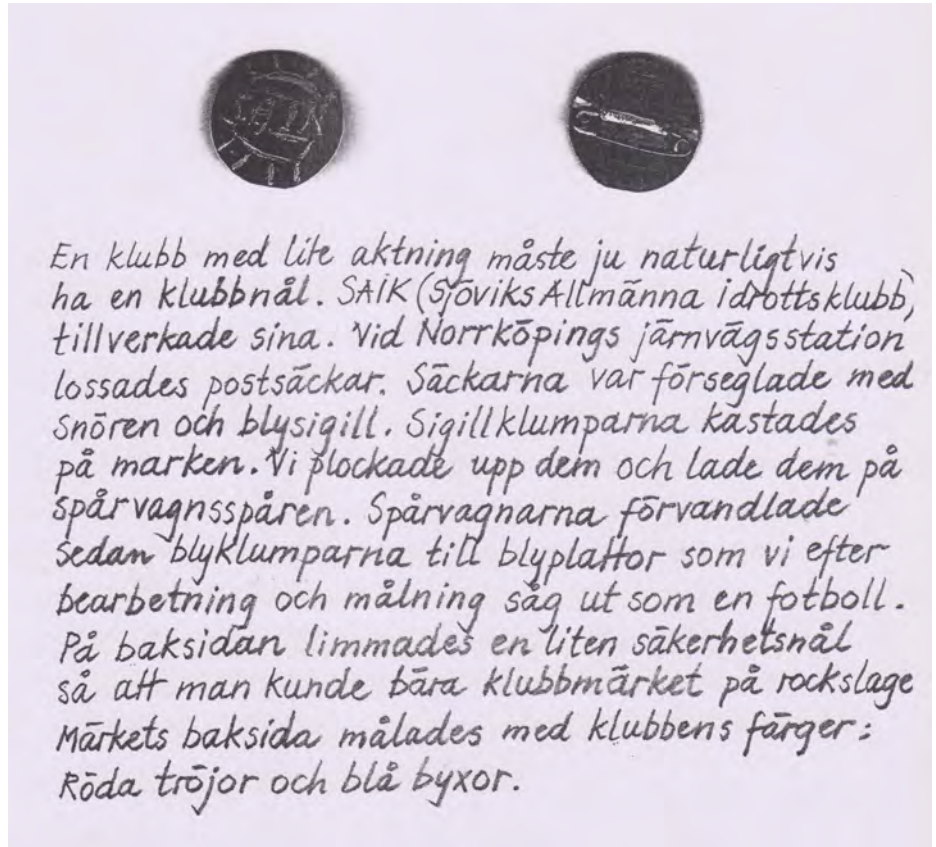 SAIK
En klubb med lite aktning måste ju naturligtvis
ha en klubbnål. SAIK (Sjöviks Allmänna idrottsklubb)
tillverkade sina. Vid Norrköpings järnvägsstation
lossades postsäckar. Säckarna var förseglade med
snören och blysigill. Sigillklumparna kastades
på marken. Vi plockade upp dem och lade dem på
spårvagnsspåren. Spårvagnarna förvandlade
sedan blyklumparna till blyplattor som vi efter
bearbetning och målning såg ut som en fotboll.
På baksidan limmades en liten säkerhetsnål
så att man kunde bära klubbmärket på rockslage
Märkets baksida målades med klubbens färger:
Röda tröjor och blå byxor.